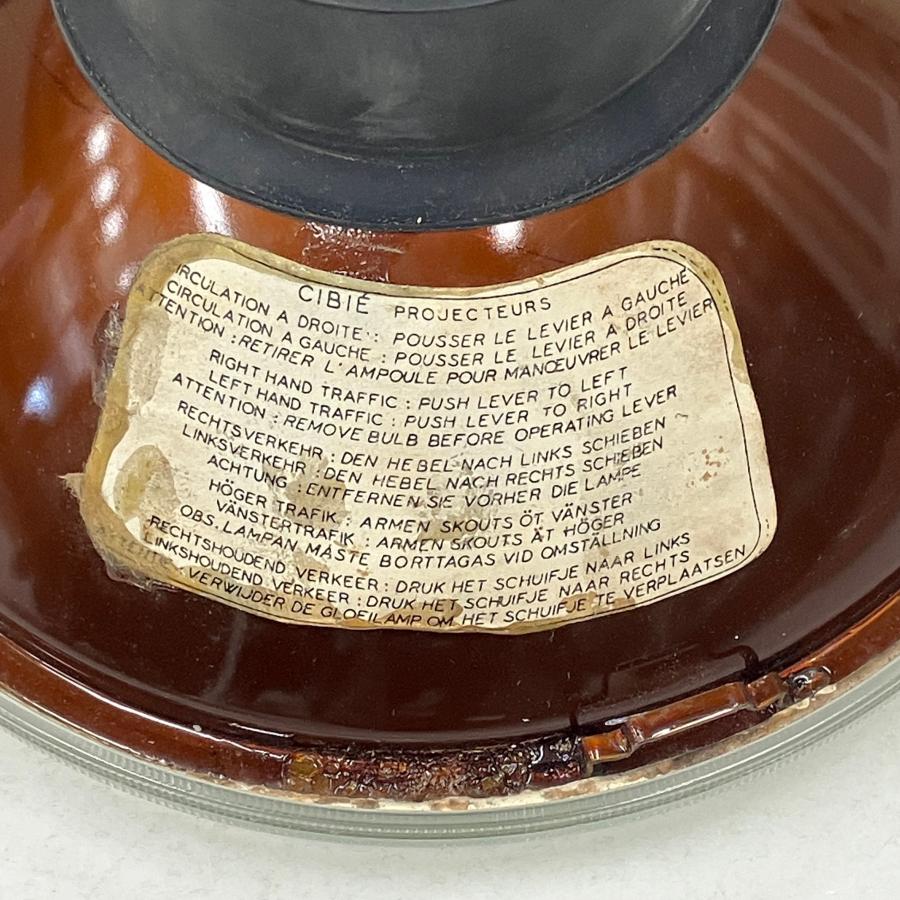 CIBIÉ PROJECTEURS
IRCULATION A DROITE : POUSSER LE LEVIER A GAUCHE
CIRCULATION A GAUCHE : POUSSER LE LEVIER A DROITE
ATTENTION : RETIRER L'AMPOULE POUR MANŒUVRER LE LEVIER
RIGHT HAND TRAFFIC : PUSH LEVER TO LEFT
LEFT HAND TRAFFIC : PUSH LEVER TO RIGHT
ATTENTION : REMOVE BULB BEFORE OPERATING LEVER
RECHTSVERKEHR : DEN HEBEL NACH LINKS SCHIEBEN
LINKSVERKEHR : DEN HEBEL NACH RECHTS SCHIEBEN
ACHTUNG : ENTFERNEN SIE VORHER DIE LAMPE
HÖGER TRAFIK : ARMEN SKOUTS ÖT VÄNSTER
VÄNSTERTRAFIK : ARMEN SKOUTS ÄT HÖGER
OBS. LAMPAN MÅSTE BORTTAGAS VID OMSTÄLLNING
RECHTSHOUDEND VERKEER : DRUK HET SCHUIFJE NAAR LINKS
LINKSHOUDEND VERKEER : DRUK HET SCHUIFJE NAAR RECHTS
VERWIJDER DE GLOEILAMP OM HET SCHUIFJE TE VERPLAATSEN